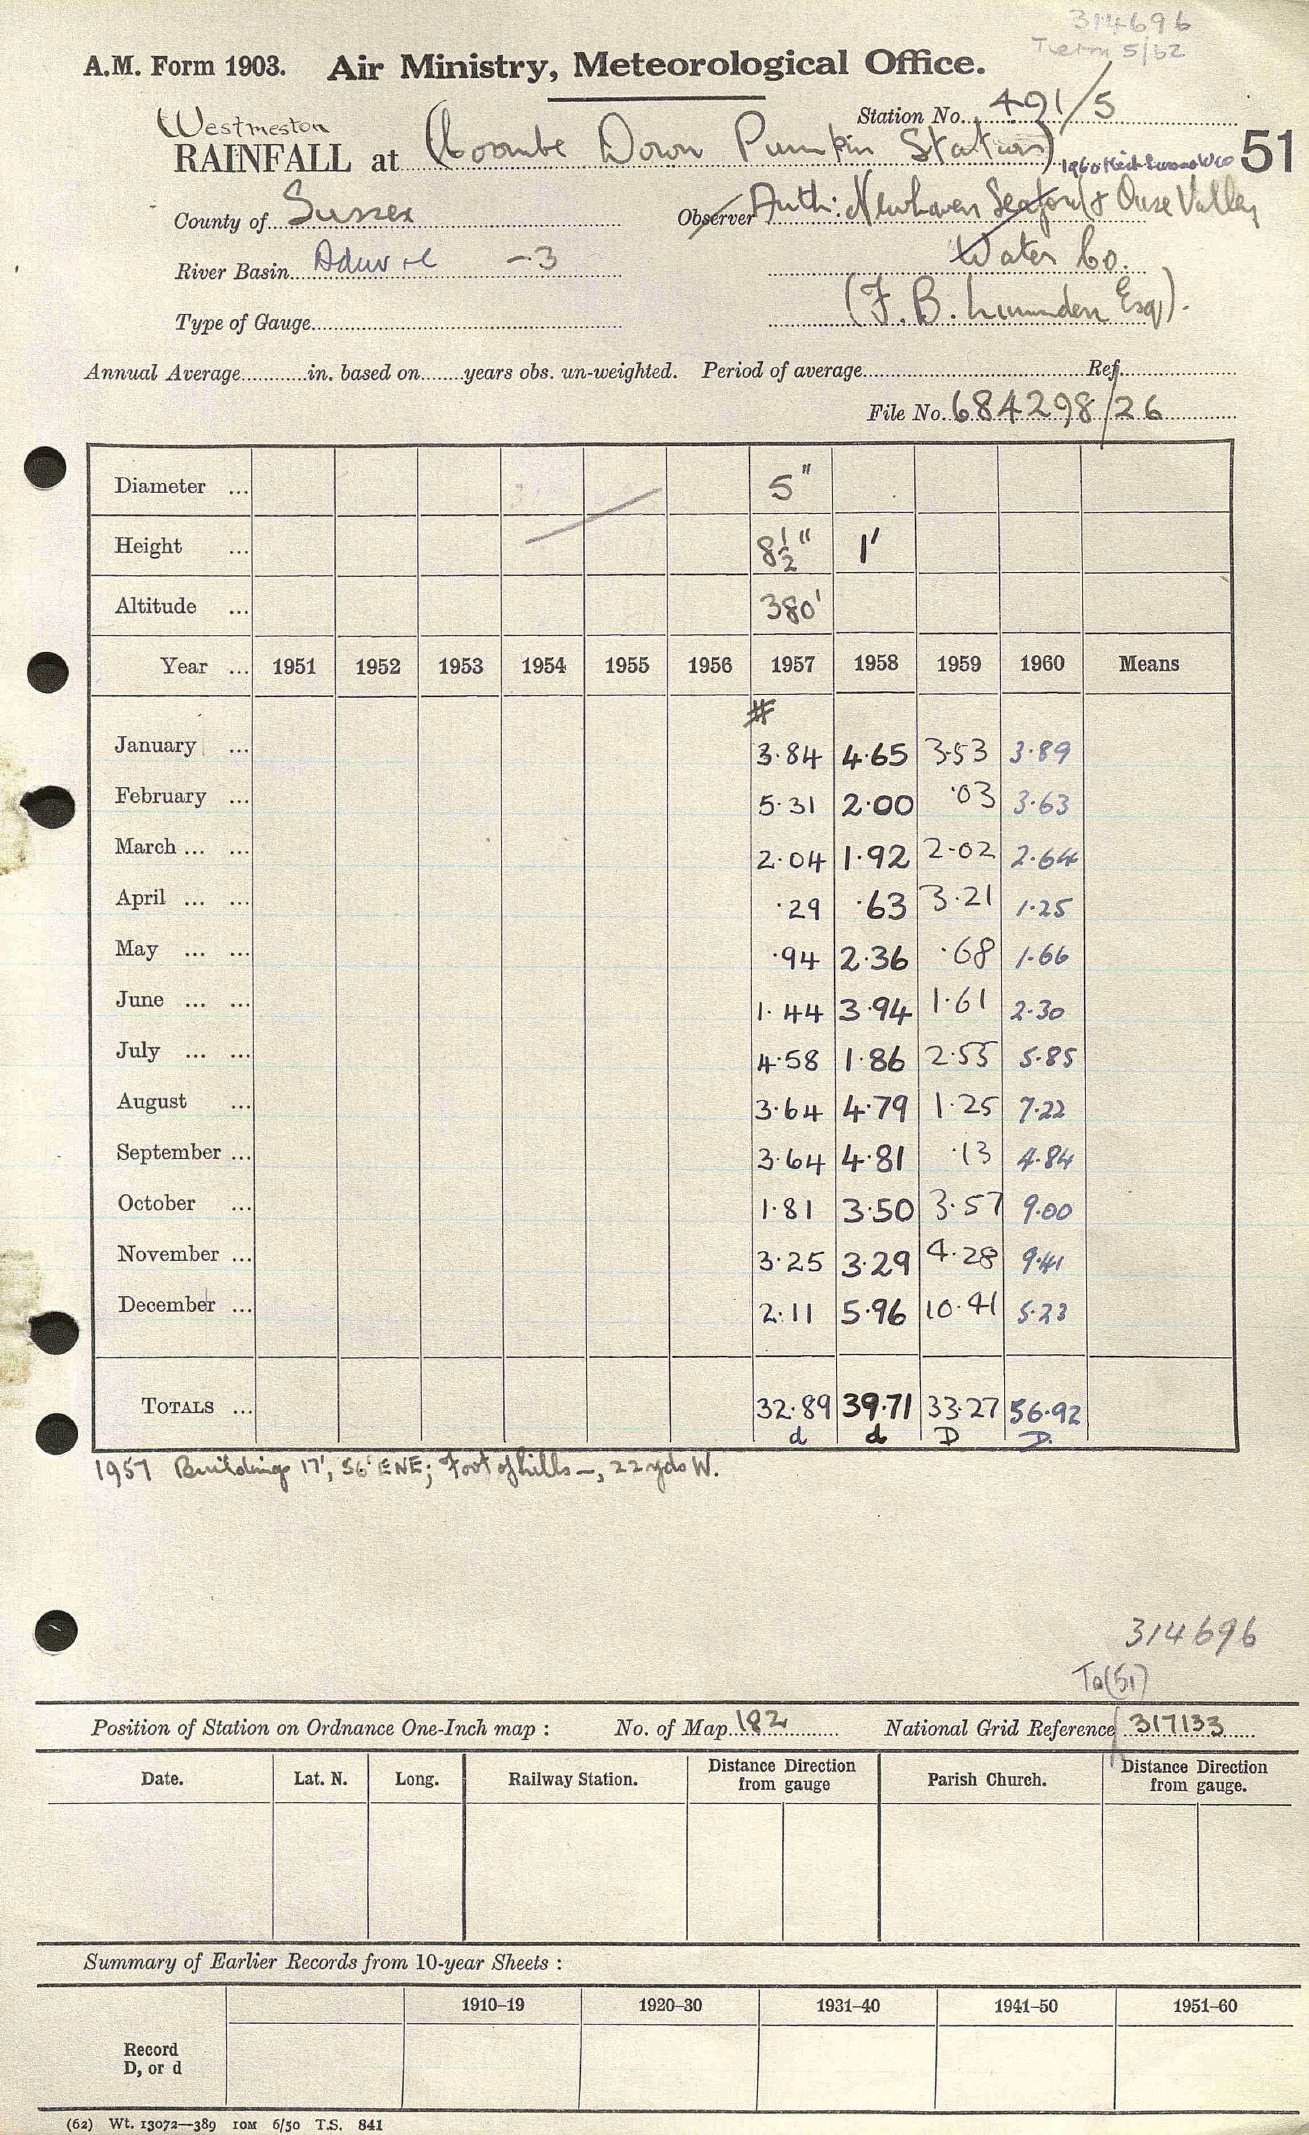 314696
Term 5/62
A.M. Form 1903. Air Ministry, Meteorological Office.
Station No. 491/5
Westmeston
RAINFALL at (Coombe Down Pumpin Station) 51
County of Sussex Observer Auth: Newhaven Seaford & Ouse Valley
River Basin -3 Water Co.
Type of Gauge (F. B. Esq).
Annual Average in. based on years obs. un-weighted. Period of average Ref.
File No. 684298/26
Diameter ... 5"
Height ... 8½" 1'
Altitude ... 380'
Year ... 1951 1952 1953 1954 1955 1956 1957 1958 1959 1960 Means
#
January ... 3.84 4.65 3.53 3.89
February ... 5.31 2.00 .03 3.63
March ... ... 2.04 1.92 2.02 2.64
April ... ... .29 .63 3.21 1.25
May ... ... .94 2.36 .68 1.66
June ... ... 1.44 3.94 1.61 2.30
July ... ... 4.58 1.86 2.55 5.85
August ... 3.64 4.79 1.25 7.22
September ... 3.64 4.81 .13 4.84
October ... 1.81 3.50 3.57 9.00
November ... 3.25 3.29 4.28 9.41
December ... 2.11 5.96 10.41 5.23
TOTALS ... 32.89 39.71 33.27 56.92
d d D D
1957 Buildings 17', 56' ENE; Foot of hills —, 22 yds W.
314696
To(51)
Position of Station on Ordnance One-Inch map : No. of Map 182 National Grid Reference 317133
Date. Lat. N. Long. Railway Station. Distance Direction from gauge Parish Church. Distance Direction from gauge.
Summary of Earlier Records from 10-year Sheets :
1910–19 1920–30 1931–40 1941–50 1951–60
Record
D, or d
(62) Wt. 13072—389 10M 6/50 T.S. 841